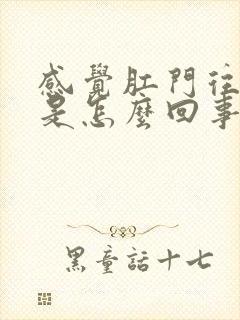 感覺肛門往
是怎麼回事
黑童話十七